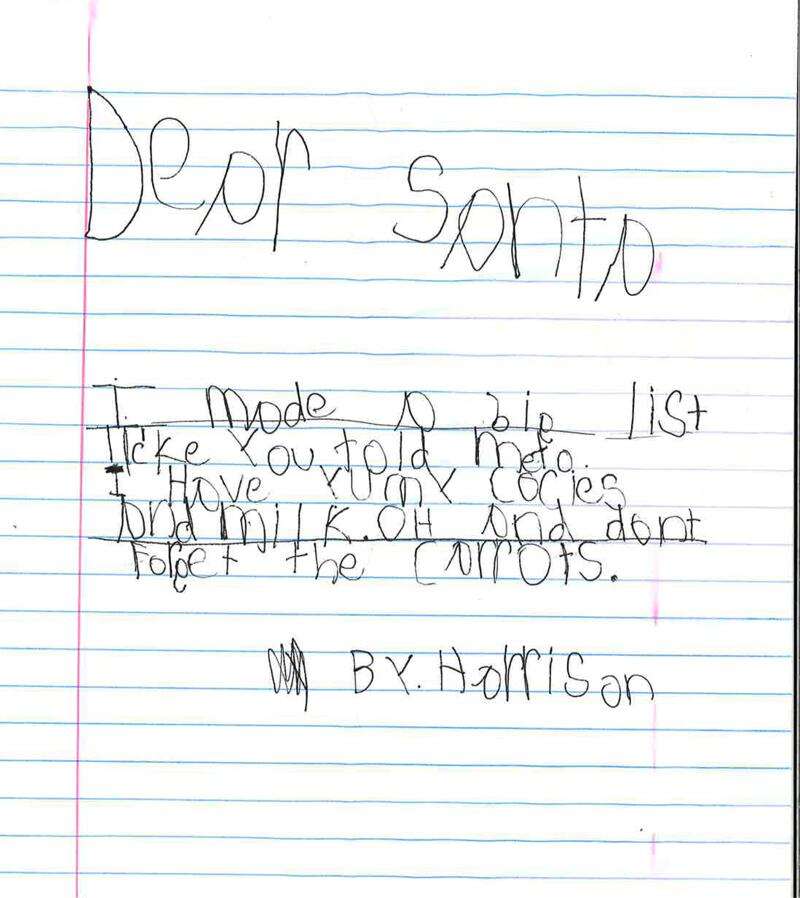 Dear Santa
I made a big list
licke You told meto.
I Have YUmmY cocies
and milk. OH and dont
Forget the carrots.
BY. Harrison